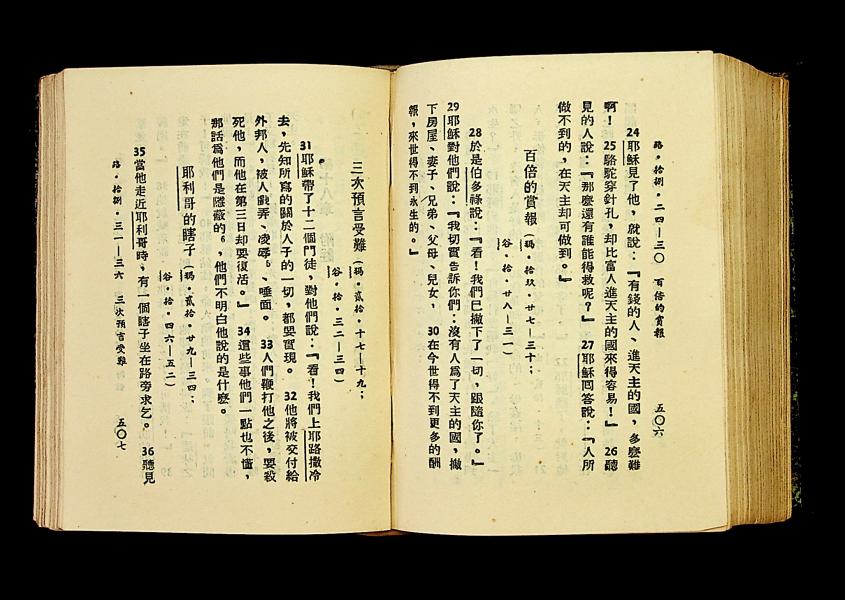 路・拾捌・二四—三〇 百倍的賞報 五〇六
24耶穌見了他，就說：『有錢的人、進天主的國，多麼難
啊！ 25駱駝穿針孔，却比富人進天主的國來得容易！』 26聽
見的人說：『那麼還有誰能得救呢？』 27耶穌回答說：『人所
做不到的，在天主却可做到。』
百倍的賞報（瑪・拾玖・廿七—三十；
谷・拾・廿八—三一）
28於是伯多祿說：『看！我們已撇下了一切，跟隨你了。』
29耶穌對他們說：『我切實告訴你們：沒有人爲了天主的國，撇
下房屋、妻子、兄弟、父母、兒女， 30在今世得不到更多的酬
報，來世得不到永生的。』
三次預言受難（瑪・貳拾・十七—十九；
谷・拾・三二—三四）
31耶穌帶了十二個門徒，對他們說：『看！我們上耶路撒冷
去，先知所寫的關於人子的一切，都要實現。 32他將被交付給
外邦人，被人戲弄、凌辱、唾面。 33人們鞭打他之後，要殺
死他，而他在第三日却要復活。』 34這些事他們一點也不懂，
那話爲他們是隱藏的，他們不明白他說的是什麼。
耶利哥的瞎子（瑪・貳拾・廿九—三四；
谷・拾・四六—五二）
35當他走近耶利哥時，有一個瞎子坐在路旁求乞。 36聽見
路・拾捌・三一—三六 三次預言受難 五〇七